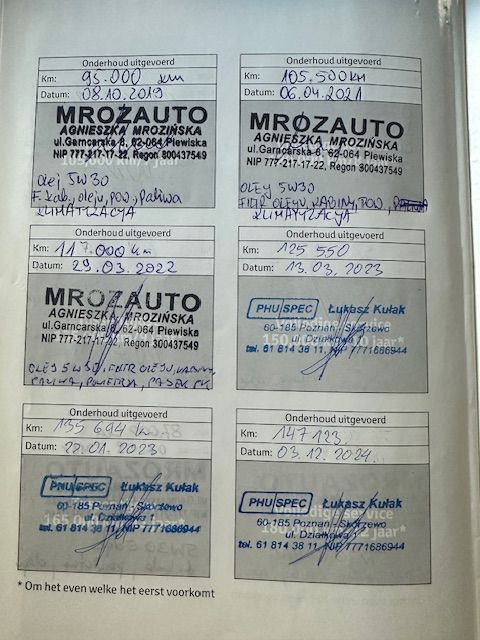 Onderhoud uitgevoerd
Km: 95.000 km
Datum: 08.10.2019
MROZAUTO
AGNIESZKA MROZIŃSKA
ul.Garncarska 8, 62-064 Plewiska
NIP 777-217-17-22, Regon 300437549
olej 5W30
F. kab, oleju, pow, paliwa
KLIMATYZACJA
Onderhoud uitgevoerd
Km: 105.500KM
Datum: 06.04.2021
MROZAUTO
AGNIESZKA MROZIŃSKA
ul.Garncarska 8, 62-064 Plewiska
NIP 777-217-17-22, Regon 300437549
OLEJ 5W30
FILTR OLEJU, KABINY, POW,
KLIMATYZACJA
Onderhoud uitgevoerd
Km: 117.000 km
Datum: 29.03.2022
MROZAUTO
AGNIESZKA MROZIŃSKA
ul.Garncarska 8, 62-064 Plewiska
NIP 777-217-17-22, Regon 300437549
OLEJ 5W30, FILTR OLEJU, KABINY
PALIWA, POWIETRZA, PASEK PK
Onderhoud uitgevoerd
Km: 125 550
Datum: 13.03.2023
PHU SPEC Łukasz Kułak
60-185 Poznań - Skórzewo
ul. Działkowa 1
tel. 61 814 38 11, NIP 7771686944
Onderhoud uitgevoerd
Km: 135 694 k
Datum: 22.01.2023
PHU SPEC Łukasz Kułak
60-185 Poznań - Skórzewo
ul. Działkowa 1
tel. 61 814 38 11, NIP 7771686944
Onderhoud uitgevoerd
Km: 147 123
Datum: 03.12.2024
PHU SPEC Łukasz Kułak
60-185 Poznań - Skórzewo
ul. Działkowa 1
tel. 61 814 38 11, NIP 7771686944
* Om het even welke het eerst voorkomt